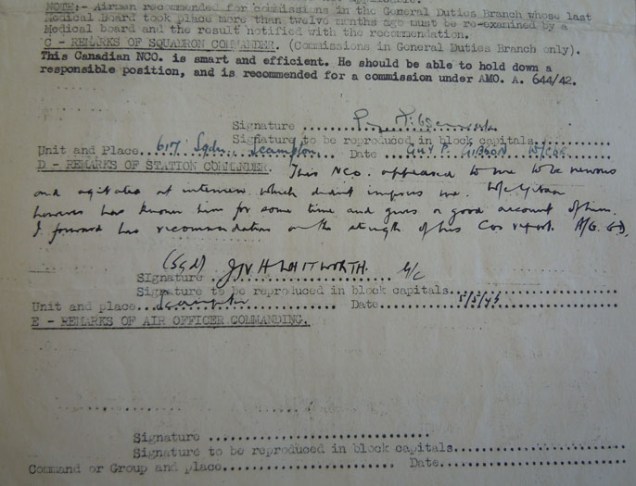 NOTE:- Airmen recommended for commissions in the General Duties Branch whose last
Medical Board took place more than twelve months ago must be re-examined by a
Medical board and the result notified with the recommendation.
C - REMARKS OF SQUADRON COMMANDER. (Commissions in General Duties Branch only).
This Canadian NCO. is smart and efficient. He should be able to hold down a
responsible position, and is recommended for a commission under AMO. A. 644/42.
Signature
Signature to be reproduced in block capitals
Unit and Place 617 Sqdn. Scampton Date GUY P. GIBSON
D - REMARKS OF STATION COMMANDER. This NCO. appeared to me to be nervous
and agitated at interview which didn't impress me. W/C Gibson
however has known him for some time and gives a good account of him.
I forward his recommendation on the strength of his Cos report.
(Sgd) J N H WHITWORTH. G/C
Signature
Signature to be reproduced in block capitals
Unit and place Scampton Date
E - REMARKS OF AIR OFFICER COMMANDING.
Signature
Signature to be reproduced in block capitals
Command or Group and place Date